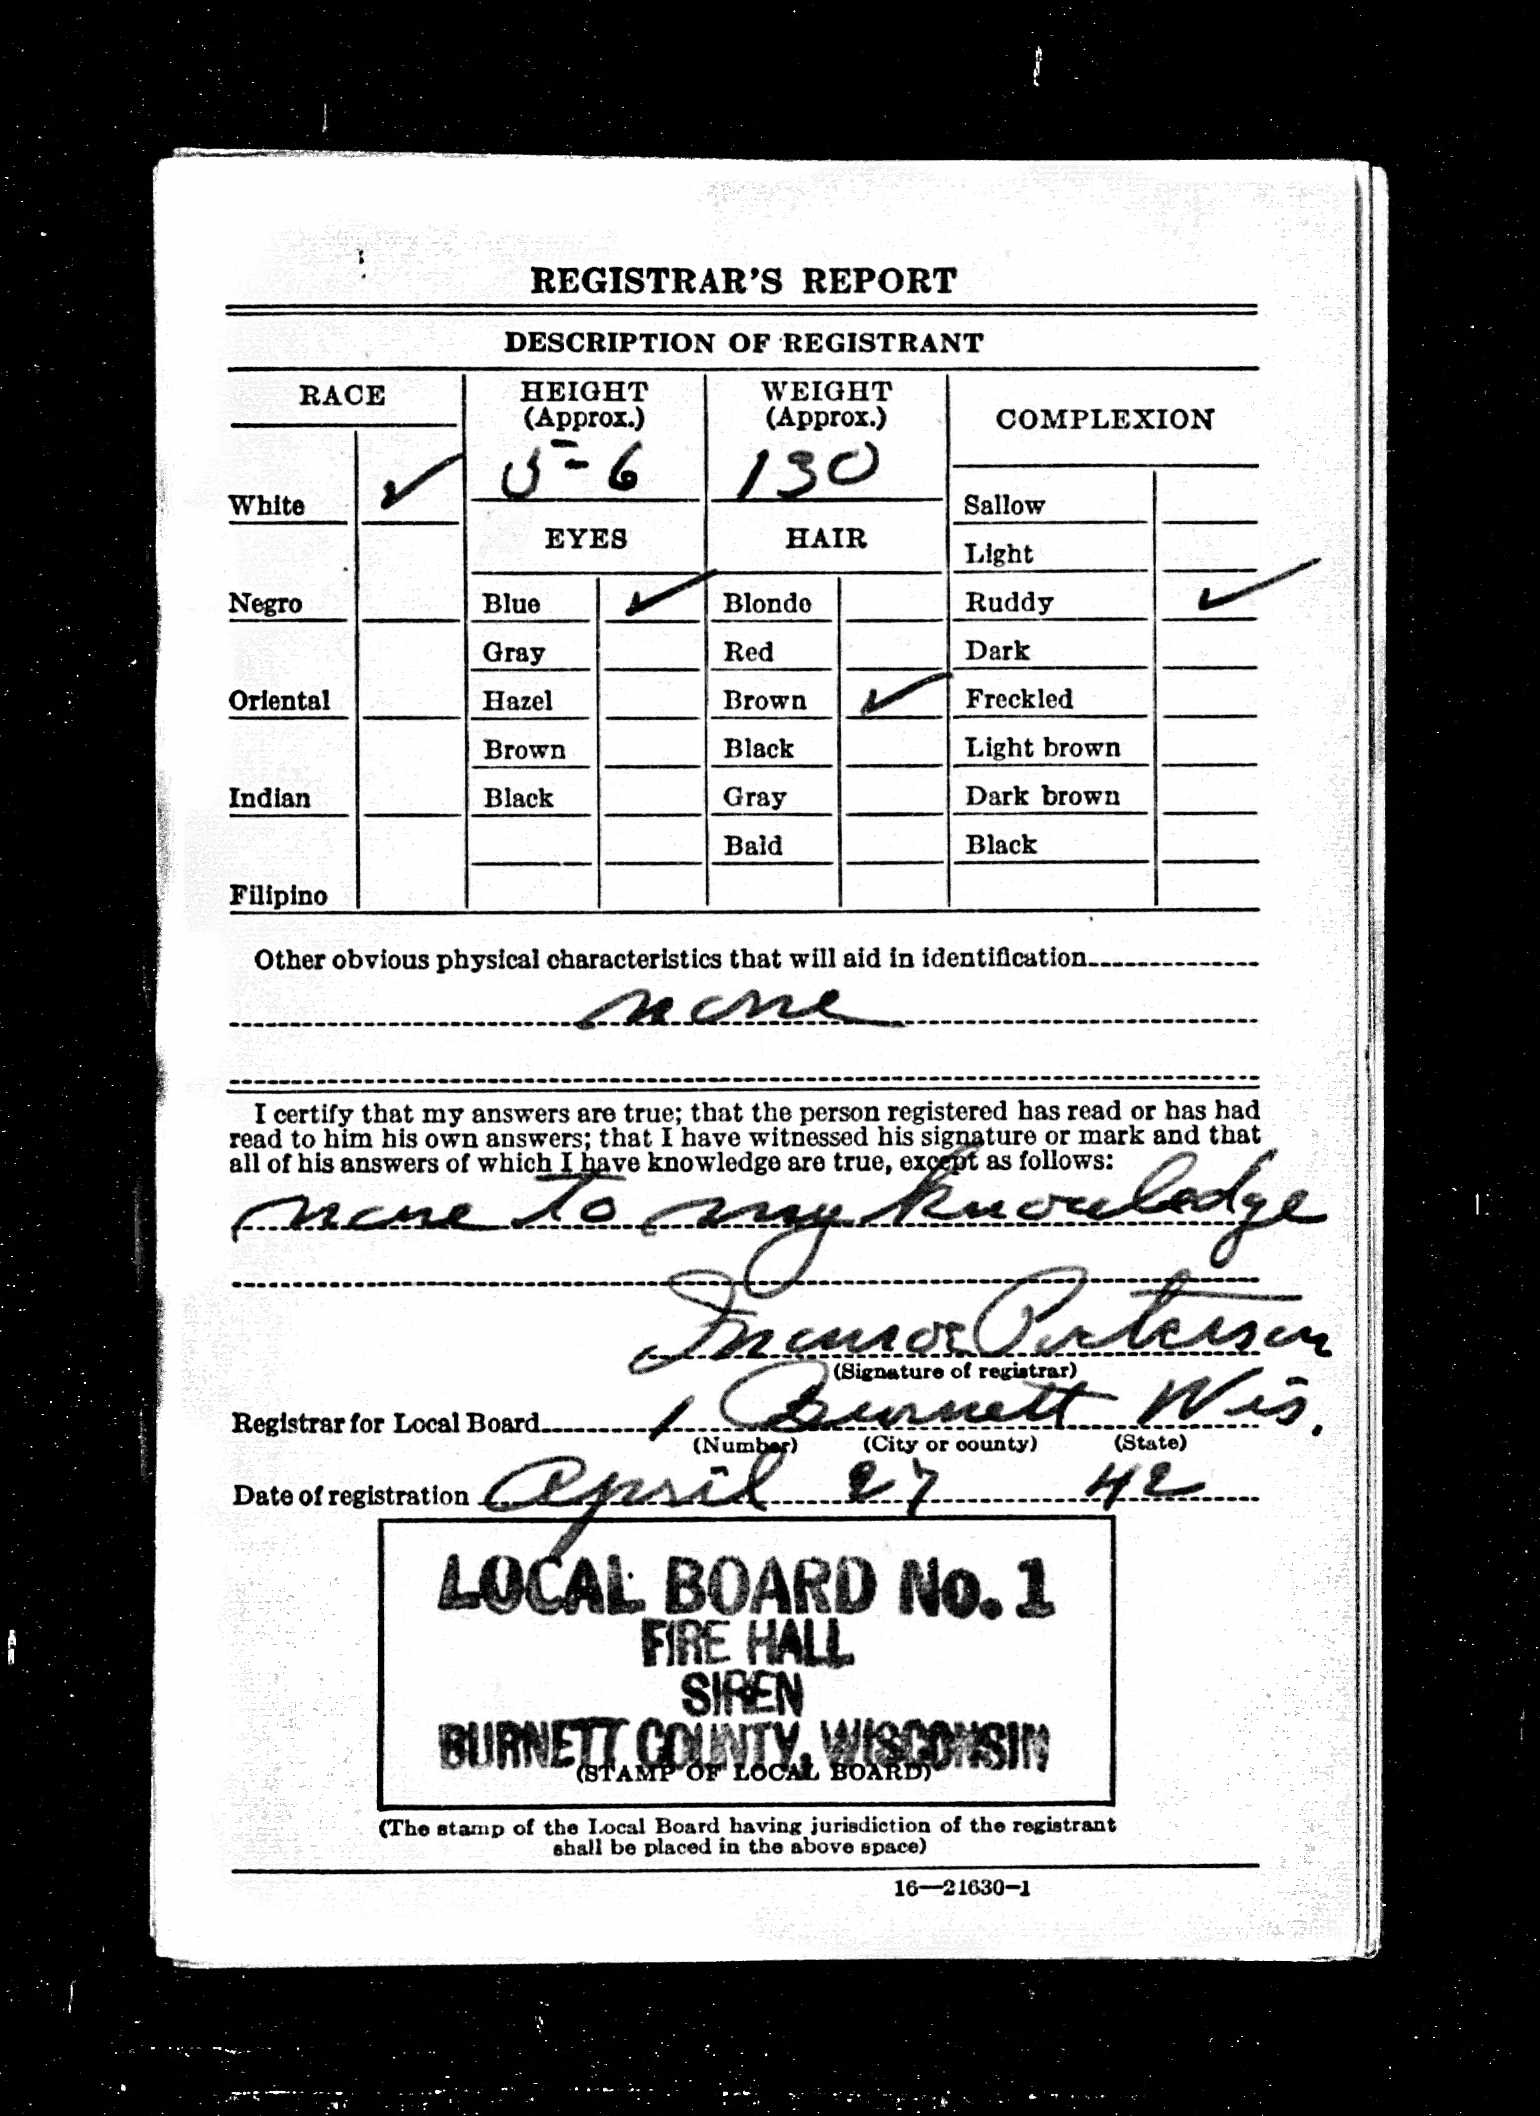 REGISTRAR'S REPORT
DESCRIPTION OF REGISTRANT
RACE
HEIGHT (Approx.)
WEIGHT (Approx.)
COMPLEXION
5-6
130
White ✓
EYES
HAIR
Sallow
Light
Negro
Blue ✓
Blonde
Ruddy ✓
Gray
Red
Dark
Oriental
Hazel
Brown ✓
Freckled
Brown
Black
Light brown
Indian
Black
Gray
Dark brown
Bald
Black
Filipino
Other obvious physical characteristics that will aid in identification
none
I certify that my answers are true; that the person registered has read or has had
read to him his own answers; that I have witnessed his signature or mark and that
all of his answers of which I have knowledge are true, except as follows:
none to my knowledge
Peterson
(Signature of registrar)
Registrar for Local Board 1 Burnett Wis.
(Number) (City or county) (State)
Date of registration April 27 42
LOCAL BOARD No. 1
FIRE HALL
SIREN
BURNETT COUNTY, WISCONSIN
(STAMP OF LOCAL BOARD)
(The stamp of the Local Board having jurisdiction of the registrant
shall be placed in the above space)
16—21630-1